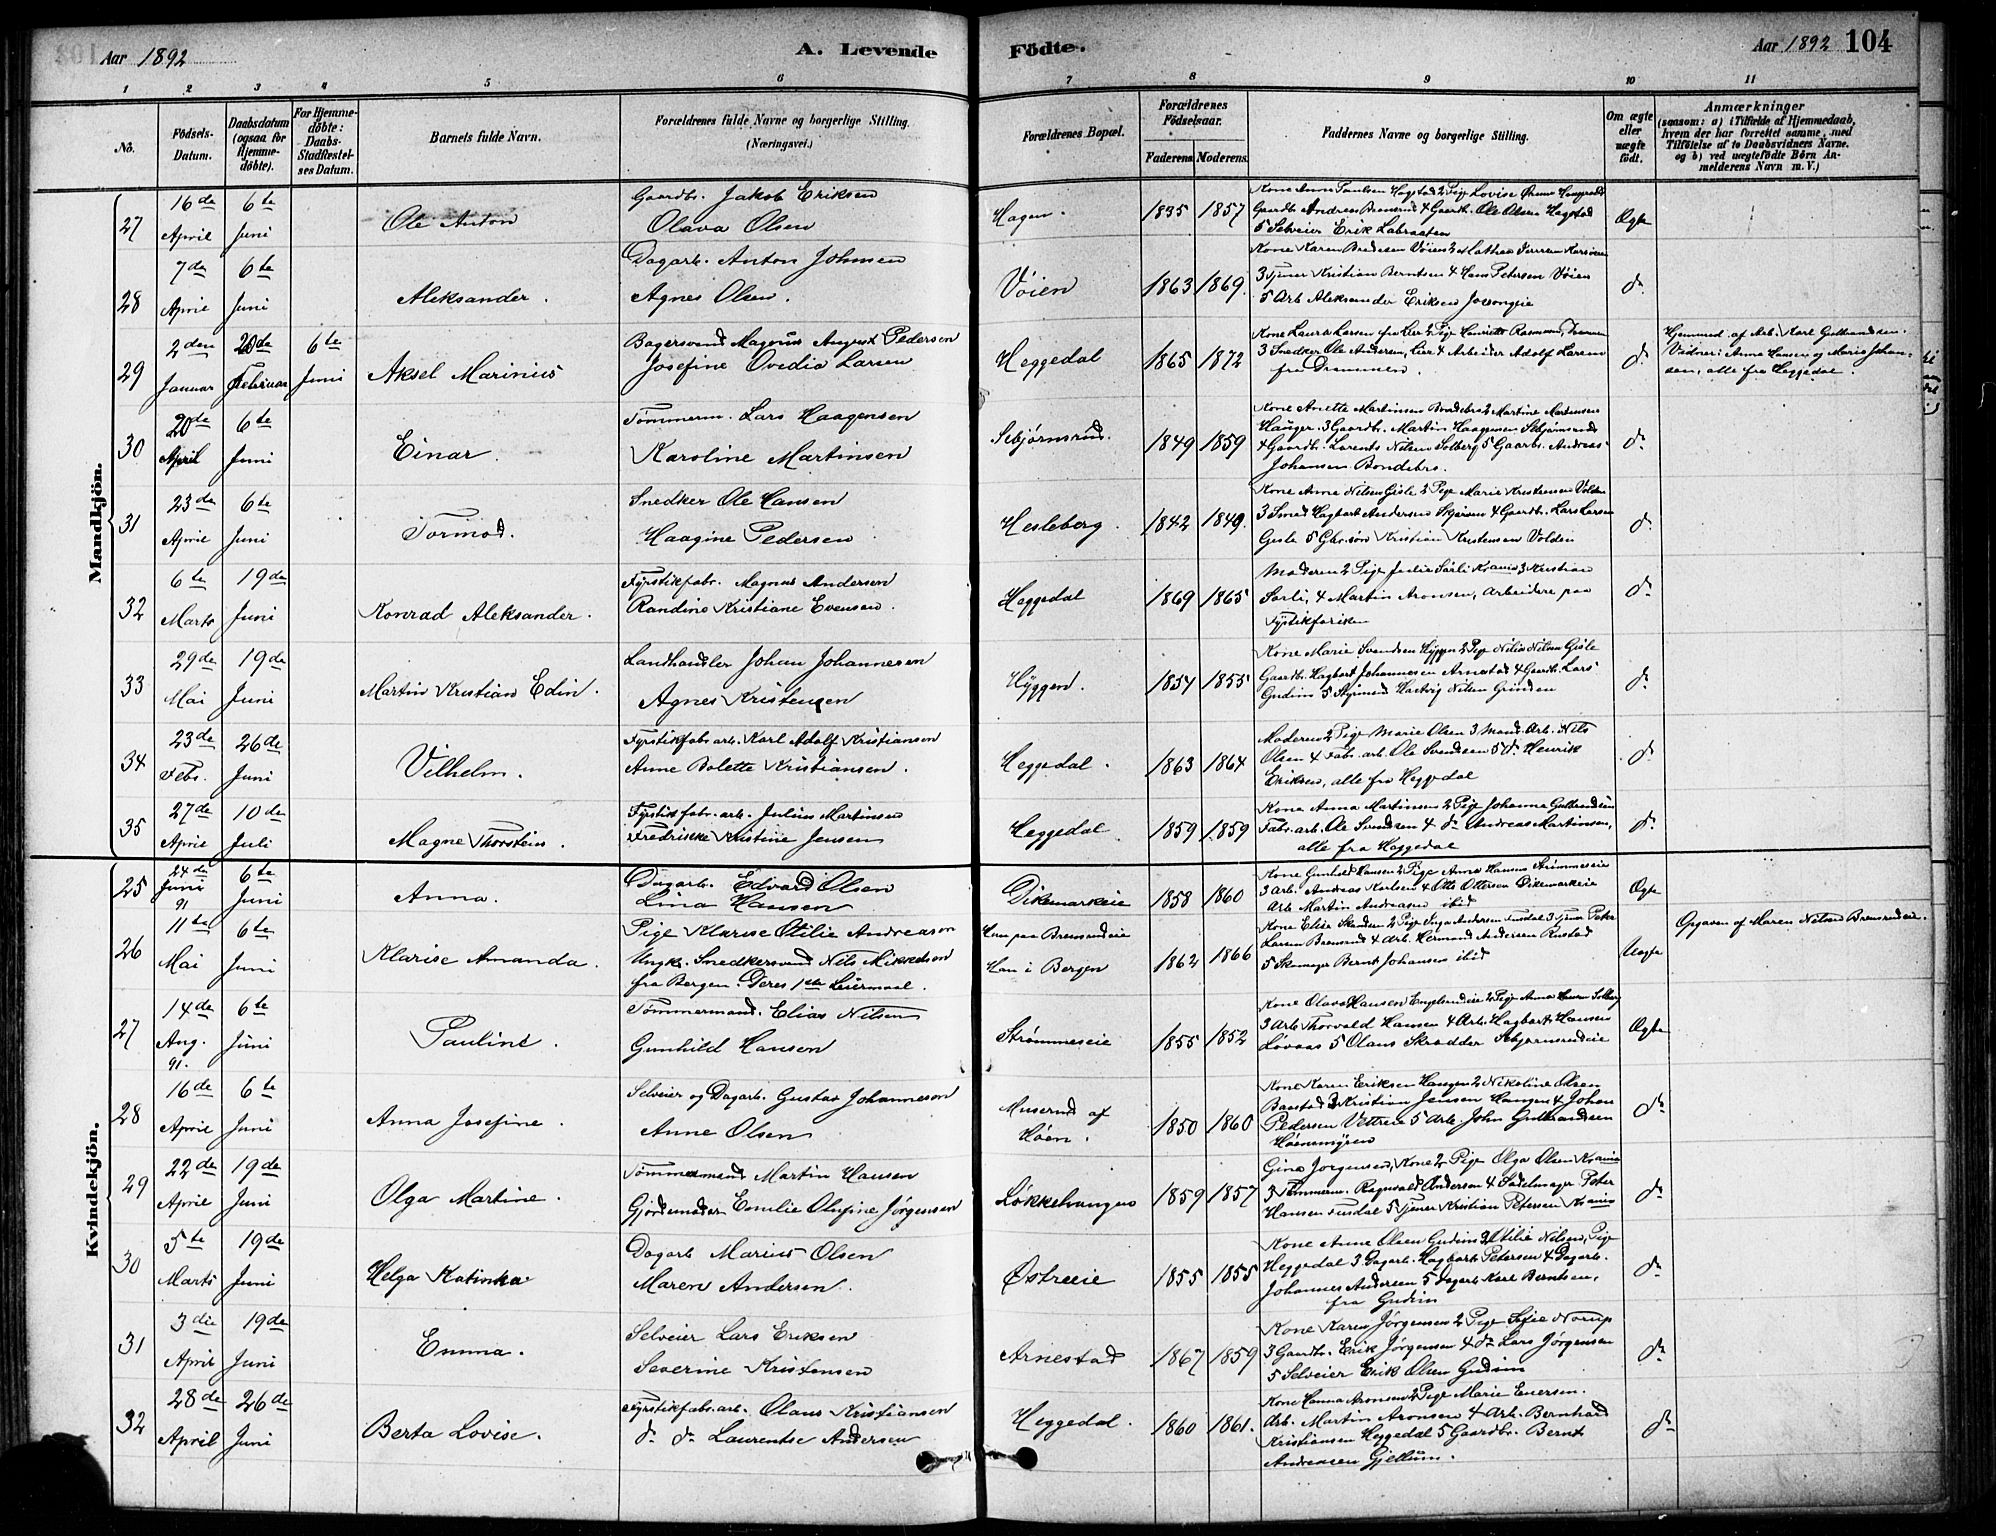 Aar 1892
A. Levende
Födte.
Aar 1892 104
1 2 3 4 5 6 7 8 9 10 11
No.
Födsels-Datum.
Daabsdatum (ogsaa for Hjemmedöbte).
For Hjemmedöbte: Daabs-Stadfestelses Datum.
Barnets fulde Navn.
Forældrenes fulde Navne og borgerlige Stilling. (Næringsvei.)
Forældrenes Bopæl.
Forældrenes Födselsaar.
Faderens. Moderens.
Faddernes Navne og borgerlige Stilling.
Om ægte eller uægte födt.
Anmærkninger
(saasom: a) i Tilfælde af Hjemmedaab, hvem der har forrettet samme, med Tilföielse af to Daabsvidners Navne. og b) ved uægtefödte Börn Anmelderens Navn m. V.)
Mandkjön.
27 16de April 6te Juni Ole Anton
Gaardbr. Jakob Eriksen
Olava Olsen
Hagen. 1835 1857
Gaardbr. Andreas Brensrud 4 Gaardb. Ole Olsen Hagstad
5 Selveier Erik Labraaten
Ægte
28 7de April 6te Juni Aleksander.
Dagarb. Anton Johnsen
Agnes Olsen.
Vöien 1863 1869.
3 Tjener Kristian Berntsen 4 Hans Petersen Vöien
5 Arb. Aleksander Eriksen
do
29 2den Januar 20de Februar 6te Juni Aksel Marinius
Bagersvend Magnus August Pedersen
Josefine Ovedia Larsen
Heggedal 1865 1872
Kone Laura Larsen fra Lier 2 Pige Henriette Rasmussen, Drammen
3 Snedker Ole Andersen, Lier 4 Arbeider Adolf Larsen
fra Drammen.
do
Hjemmed. af Arb. Karl Gulbrandsen.
Vidner: Anna Hansen og Marie Johansen, alle fra Heggedal.
30 20de April 6te Juni Einar.
Tømmerm. Lars Haagensen
Karoline Martinsen
Sebjørnsrud. 1849 1859
Kone Anette Martinsen Bondebro 2 Martine Martensen
Hauger. 3 Gaardb. Martin Haagensen Sebjørnsrud
4 Gaardb. Lorents Nilsen Solberg 5 Gaarb. Andreas
Johansen Bondebro.
do
31 23de April 6te Juni Tormod.
Snedker Ole Hansen
Haagine Pedersen
Hesleberg. 1842 1849.
Kone Anna Nilsen Gisle 2 Pige Marie Kristensen Volden
3 Smed Hagbart Andersen Skjæven 4 Gaardb. Lars Larsen
Gisle 5 Gbr.sön Kristian Kristensen Volden
do
32 6te Marts 19de Juni Konrad Aleksander.
Fyrstikfabr. Magnus Andersen
Randine Kristiane Evensen.
Heggedal 1869 1865
Moderen 2 Pige Julie Sørli Krania 3 Kristian
Sørli, 4 Martin Aronsen, Arbeidere paa
Fyrstikfabriken
do
33 29de Mai 19de Juni Martin Kristian Edin.
Landhandler Johan Johannesen
Agnes Kristensen
Hyggen. 1854 1855
Kone Marie Svendsen Hyggen 2 Pige Nilia Nilsen Gisle
Gaardb. Hagbart Johannesen Arnestad 4 Gaardb. Lars
Gudim 5 Styrmand Hartvig Nilsen Grinden
do
34 23de Febr. 26de Juni Vilhelm.
Fyrstikfabr.arb. Karl Adolf Kristiansen
Anne Bolette Kristiansen.
Heggedal. 1863 1864
Moderen 2 Pige Marie Olsen 3 Mand. Arb. Nils
Olsen 4 Fabr.arb. Ole Svendsen 5 do Henrik
Eriksen, alle fra Heggedal
do
35 27de April 10de Juli Magne Thorstein.
Fyrstikfabr.arb. Julius Martinsen
Fredrikke Kristine Jensen
Heggedal. 1859 1859
Kone Anna Martinsen 2 Pige Johanna Gulbrandsen
Fabr.arb. Ole Svendsen 4 do Andreas Martinsen,
alle fra Heggedal
do
Kvindekjön.
25 24de Juni 91 6te Juni Anna.
Dagarb. Edvard Olsen
Lina Hansen
Dikemarkeie 1858 1860
Kone Gunhild Hansen 2 Pige Anna Hansen Strömmeseie
3 Arb. Andreas Karlsen 4 Otto Ottersen Dikemarkeie
Arb Martin Andreasen ibid
Ægte
26 11te Mai 6te Juni Klarise Amanda.
Pige Klarise Otilie Andreasen
Ungk. Snedkersvend Nils Mikkelsen
fra Bergen. Deres 1ste Leiermaal.
Hun paa Brensrudeie
Han i Bergen
1862 1866
Larsen Brensrud 4 Arb. Hermand Andersen Rustad
5 Skomager Bernt Johansen ibid
Uægte
Opgaven af Maren Nilsen Brensrudeie.
27 14de Aug. 91. 6te Juni Pauline.
Tømmermand. Elias Nilsen
Gunhild Hansen
Strømmeseie 1855 1852
Kone Olava Hansen Engelsrudeie 2 Pige Anna Hansen Solberg
3 Arb Thorvald Hansen 4 Arb. Hagbart Hansen
Løvaas 5 Olaus Skrædder Sebjørnsrudeie
Ægte
28 16de April 6te Juni Anna Josefine.
Selveier og Dagarb. Gustav Johannesen
Anne Olsen
Muserud af
Høen.
1850 1860
Kone Karen Eriksen Haugen 2 Nikoline Olsen
Baastad 3 Kristian Jensen Haugen 4 Johan
Pedersen Vettre 5 Arb John Gulbrandsen
Höensmyren
do
29 22de April 19de Juni Olga Martine.
Tømmermand Martin Hansen
Gjordemoder Emilie Olufine Jørgensen
Løkkehaugen 1859 1857
Gina Jorgensen, Kone 2 Pige Olga Olsen Krania
3 Tømmerm. Ragnvald Andersen 4 Sadelmager Peter
Hansen Fusdal 5 Tjener Kristian Petersen Krania
do
30 5te Marts 19de Juni Helga Katinka.
Dagarb Marius Olsen
Maren Andersen.
Østreeie 1855 1855
Kone Anne Olsen Gudim 2 Otilie Nilsen, Pige
Heggedal 3 Dagarb. Hagbart Petersen 4 Dagarb.
Johannes Andersen 5 Dagarb Karl Berntsen,
fra Gudim
do
31 3die April 19de Juni Emma.
Selveier Lars Eriksen
Severine Kristensen
Arnestad 1867 1859
Kone Karen Jørgensen 2 Pige Sofie Norup
3 Gaardb. Erik Jørgensen 4 do Lars Jørgensen
5 Selveier Erik Olsen Gudim
do
32 28de April 26de Juni Berta Lovise.
Fyrstikfabr.arb. Olaus Kristiansen
do do Laurentse Andersen
Heggedal. 1860 1861.
Kone Hanna Aronsen 2 Pige Marie Enersen.
Arb. Martin Aronsen 4 Arb. Bernhard
Kristiansen Heggedal 5 Gaardbr. Bernt
Andreasen Gjellum.
do